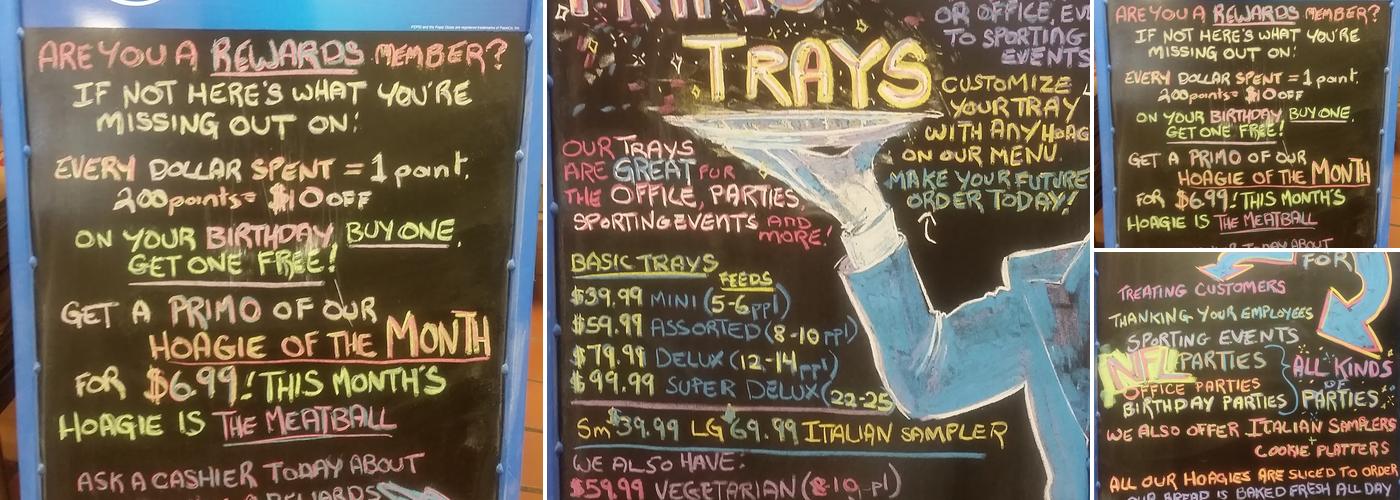 ARE YOU A REWARDS MEMBER?
IF NOT HERE'S WHAT YOU'RE
MISSING OUT ON:
EVERY DOLLAR SPENT = 1 point.
200 points = $10 OFF
ON YOUR BIRTHDAY BUY ONE,
GET ONE FREE!
GET A PRIMO OF OUR
HOAGIE OF THE MONTH
FOR $6.99! THIS MONTH'S
HOAGIE IS THE MEATBALL
ASK A CASHIER TODAY ABOUT
REWARDS
TRAYS
OUR TRAYS
ARE GREAT FOR
THE OFFICE, PARTIES,
SPORTING EVENTS AND
MORE!
BASIC TRAYS
FEEDS
$39.99 MINI (5-6 ppl)
$59.99 ASSORTED (8-10 ppl)
$79.99 DELUX (12-14 ppl)
$99.99 SUPER DELUX (22-25
Sm $39.99 LG $69.99 ITALIAN SAMPLER
WE ALSO HAVE:
$59.99 VEGETARIAN (8-10 ppl)
OR OFFICE,
TO SPORTING
EVENTS
CUSTOMIZE
YOUR TRAY
WITH ANY HOAG
ON OUR MENU.
MAKE YOUR FUTURE
ORDER TODAY!
ARE YOU A REWARDS MEMBER?
IF NOT HERE'S WHAT YOU'RE
MISSING OUT ON:
EVERY DOLLAR SPENT = 1 point.
200 points = $10 OFF
ON YOUR BIRTHDAY BUY ONE,
GET ONE FREE!
GET A PRIMO OF OUR
HOAGIE OF THE MONTH
FOR $6.99! THIS MONTH'S
HOAGIE IS THE MEATBALL
TODAY ABOUT
FOR
TREATING CUSTOMERS
THANKING YOUR EMPLOYEES
SPORTING EVENTS
NFL PARTIES
OFFICE PARTIES
BIRTHDAY PARTIES
ALL KINDS
OF
PARTIES
WE ALSO OFFER ITALIAN SAMPLERS
COOKIE PLATTERS
ALL OUR HOAGIES ARE SLICED TO ORDER
OUR BREAD IS BAKED FRESH ALL DAY